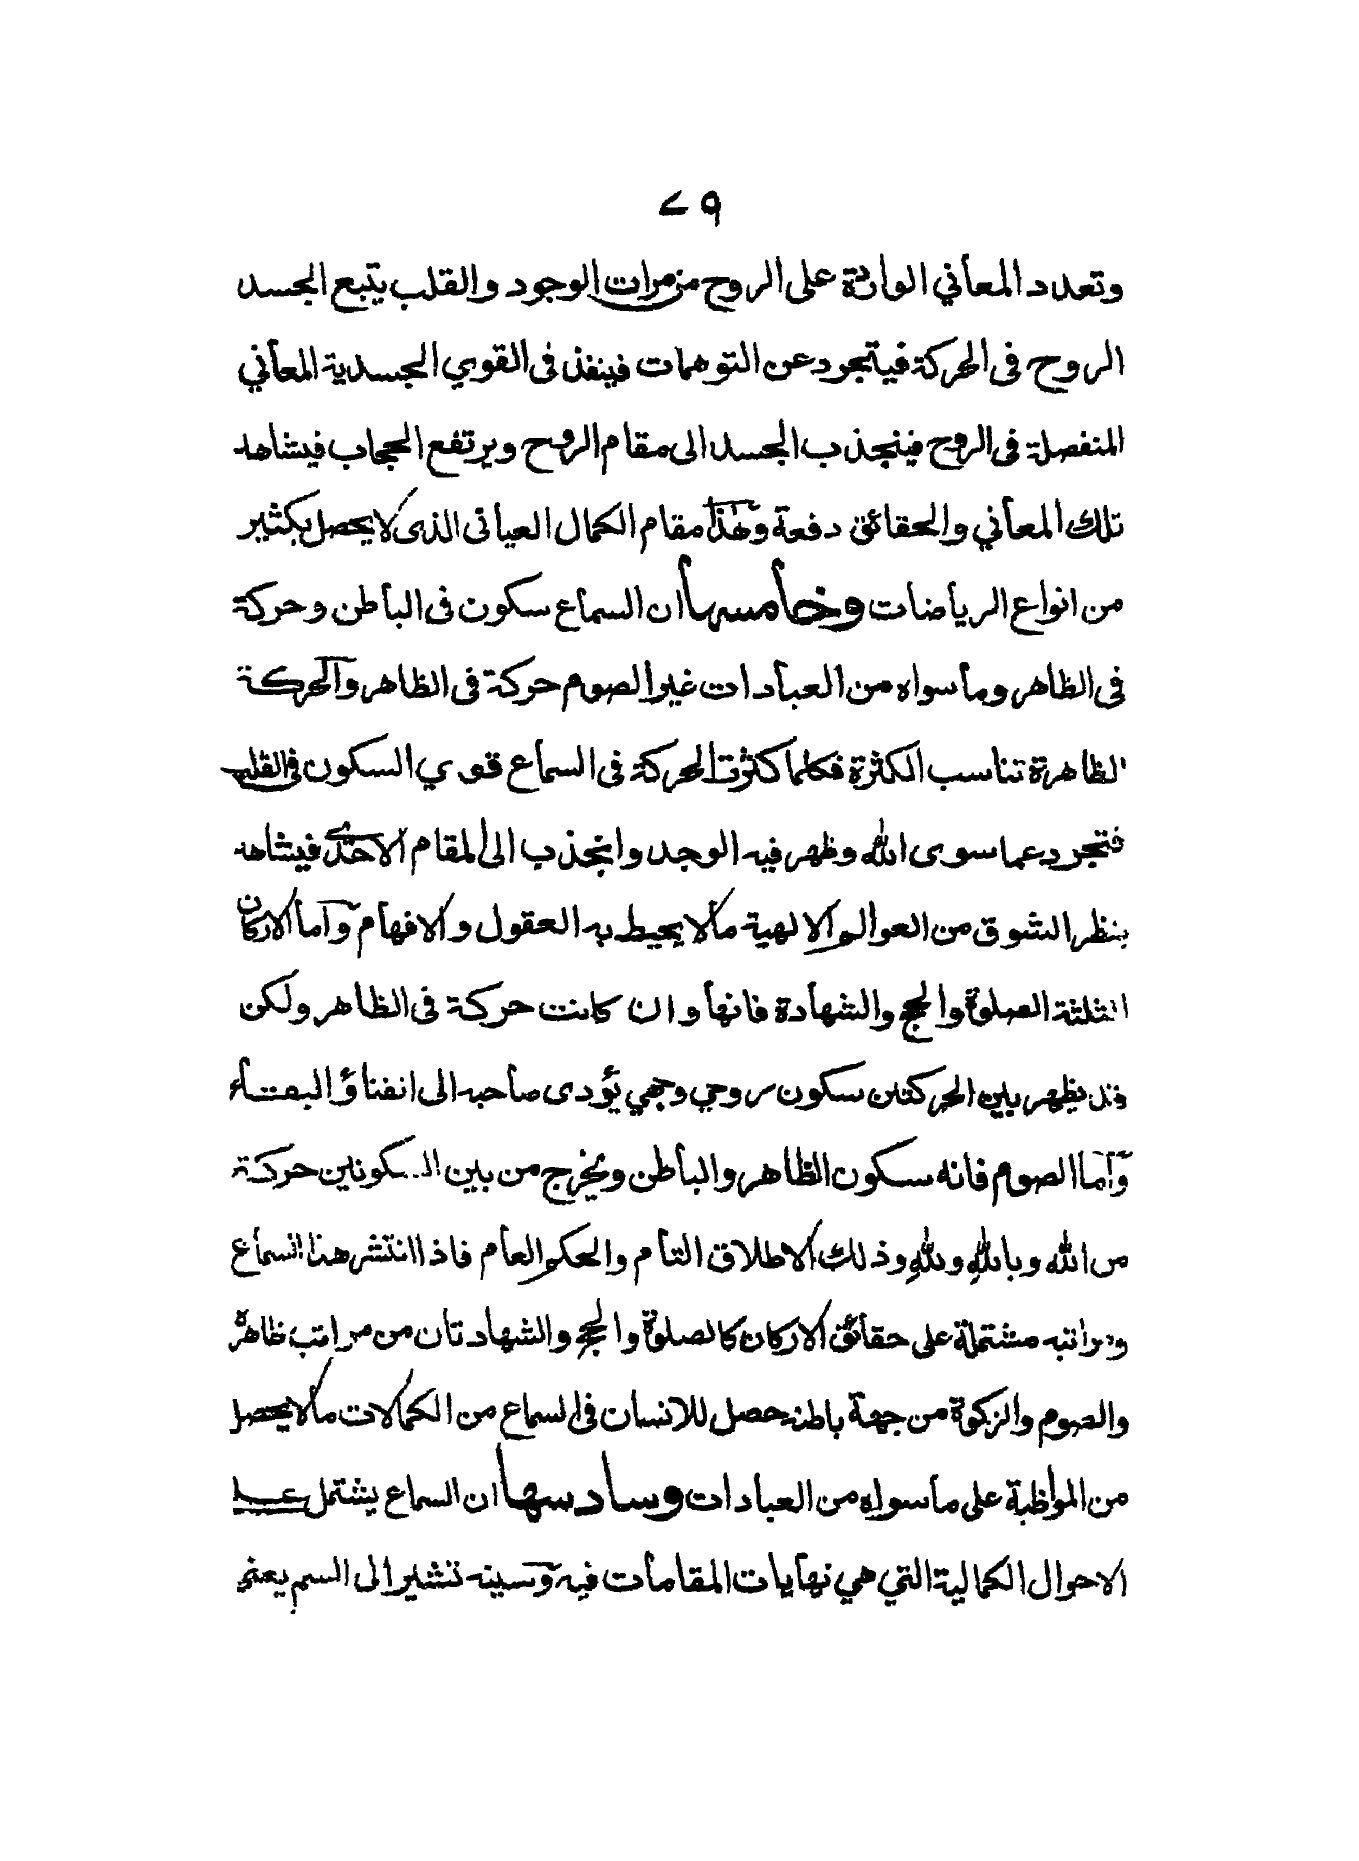 ٧٩
وتعدد المعاني الواردة على الروح من مراتب الوجود والقلب يتبع الجسد
الروح فى الحركة فيتجرد عن التوهمات فينفذ فى القوي الجسدية المعاني
المنفصلة فى الروح فينجذب الجسد الى مقام الروح ويرتفع الحجاب فيشاهد
تلك المعاني والحقائق دفعة وهذا مقام الكمال العياني الذى لا يحصل بكثير
من انواع الرياضات وخامسها ان السماع سكون فى الباطن وحركة
فى الظاهر وما سواه من العبادات غير الصوم حركة فى الظاهر والحركة
الظاهرة تناسب الكثرة فكلما كثرت الحركة فى السماع قوي السكون فى القلب
فتجرد عما سوى الله وظهر فيه الوجد وانجذب الى المقام الاحدى فيشاهد
بنظر الشوق من العوالم الالهية ما لا يحيط به العقول والافهام واما الاركان
الثلثة الصلوة والحج والشهادة فانها وان كانت حركة فى الظاهر ولكن
قد يظهر بين الحركتين سكون روحي وجهي يؤدى صاحبه الى الفناؤ البقاء
واما الصوم فانه سكون الظاهر والباطن ويخرج من بين السكونين حركة
من الله وبالله ولله وذلك الاطلاق التام والحكم العام فاذا انتشر هذا السماع
ومراتبه مشتملة على حقائق الاركان كالصلوة والحج والشهادتان من مراتب ظاهرة
والصوم والزكوة من جهة باطنه حصل للانسان فى السماع من الكمالات ما لا يحصل
من المواظبة على ما سواه من العبادات وسادسها ان السماع يشتمل على
الاحوال الكمالية التي هي نهايات المقامات فيه وسينه تشير الى السم يعنى